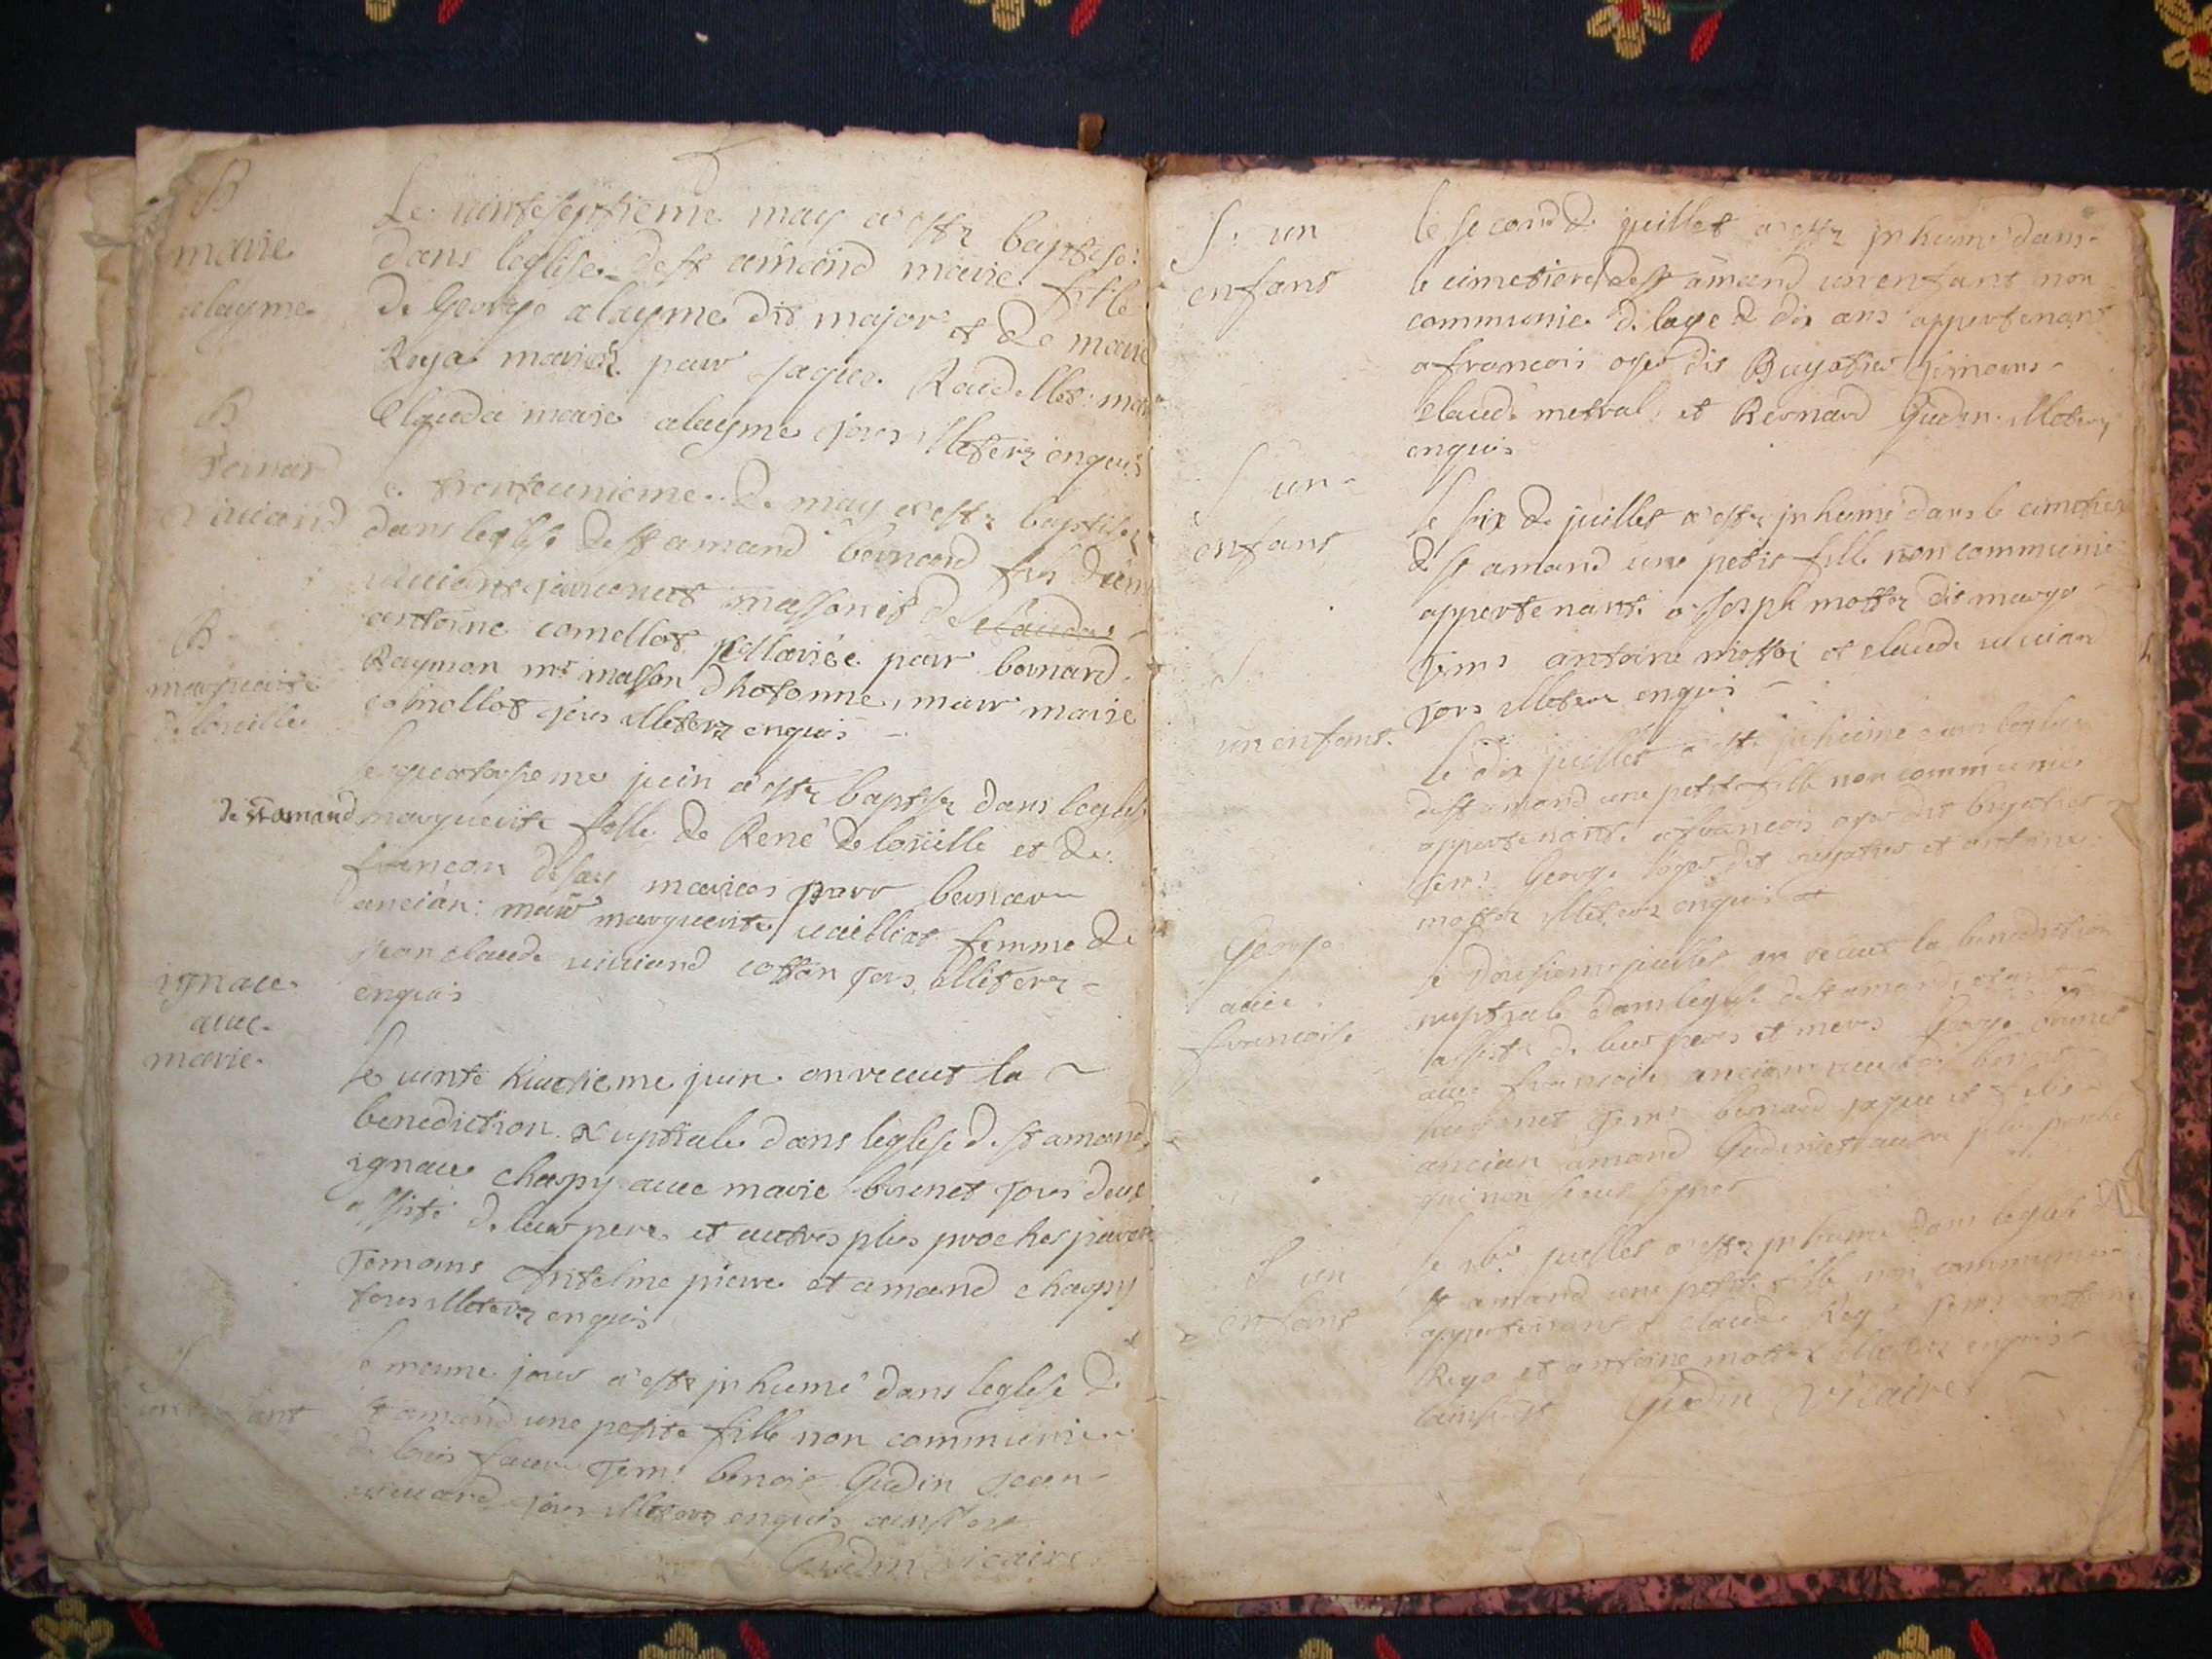 B
marie
alayme
Le vinteseptieme may a este baptisé
dans leglise de st amand marie fille
de George alayme dit major et de marie
Reya mariés par Jaque Raudellet mar
Clauda marie alayme tous illeterez enquis
B
Bernard
viuiand
Le trenteunieme de may a este baptisez
dans leglise de st amand bernard fils dum
viuiand masson et de
antoine comellot par bernard
Raymon mr masson dhotonne, marr marie
comellot tous illeterez enquis
B
marguerite
de loueille
Le quatorseme juin a este baptise dans leglise
de st amand marguerite fille de René de loüille et de
francoise desay maries parr bernar
ancian: marr marguerite uailliat femme de
jean claude viuiand cottan tous illiterez
enquis
ignace
auec
marie
Le uinte huitieme juin on receut la
benediction nuptiale dans leglise de st amand
ignace chapy auec marie brunet tous deux
assisté de leur pere et autres plus proches parens
Temoins Antelme pierre et amand chapy
tous illeterez enquis
S
un enfant
le meme jour a este jnhumé dans leglise de
st amand une petite fille non communiee
de louis faure Tems benoit Gudin Jean
viuiand tous illeterez enquis
Gudin Vicaire
S. un
enfant
le second de juillet a este jnhumé dans
le cimetiere de st amand un enfant non
communie de laye de dix ans appertenant
a francois oger dit Buyatier Temoins
claude metral et Bernard Gudin illeterez
enquis
S un
enfant
le six de juillet a este jnhumé dans le cimetiere
de st amand une petit fille non communie
appertenant a Joseph mottoz dit margo
Tems antoine mottoz et claude viuiand
tous illeterez enquis
S
un enfant
le dix juillet a este jnhumé dans leglise
de st amand une petite fille non communiee
appertenant a francois oger dit buyatier
tems George oger dit buyatier et antoine
mottoz illeterez enquis
George
auec
francoise
le dousieme juillet on receut la benediction
nuptiale dans leglise de st amand etant
assisté de leur peres et meres George brunet
auec francoise ancian
Tems bernard jaque et felis
ancian amand Gudin et autres plus proche
qui non sceus signer
S un
enfant
le juillet a este jnhumé dans leglise de
st amand une petite fille non communiee
appertenant a claude Reya Tems antoine
Reya et antoine mottoz illeterez enquis
Gudin Vicaire